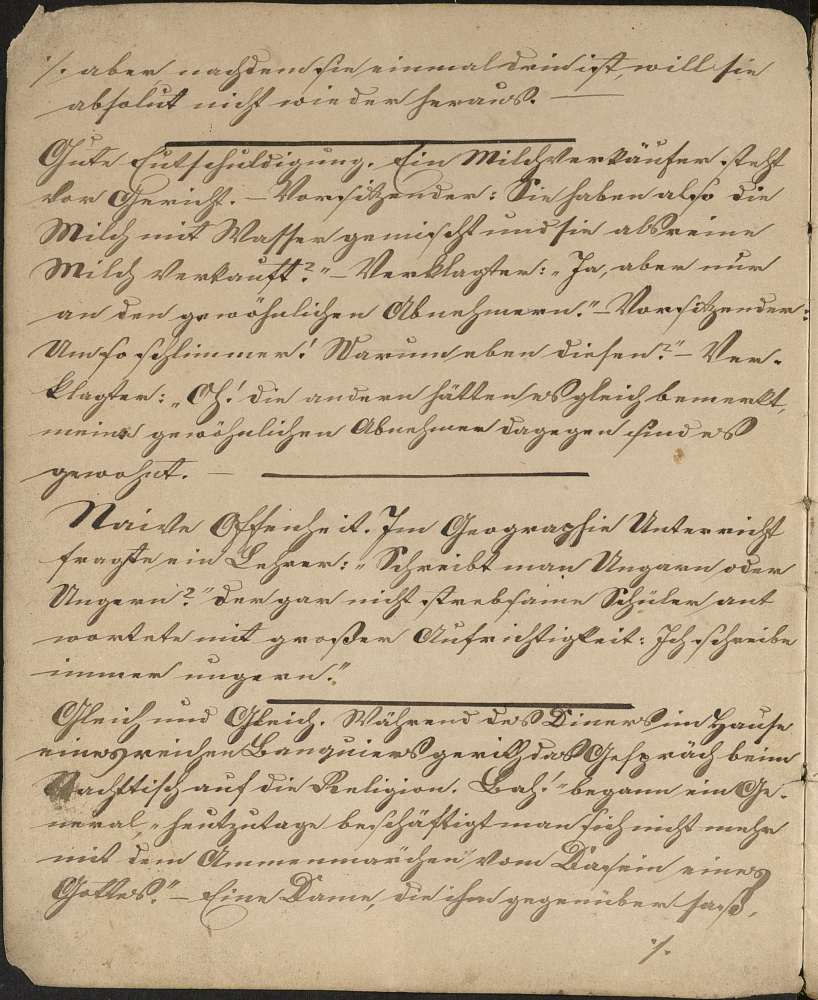 ·/· aber, nachdem sie einmal drin ist, will sie
absolut nicht wieder heraus. —
Gute Entschuldigung. Ein Milchverkäufer steht
vor Gericht. – Vorsitzender: Sie haben also die
Milch mit Wasser gemischt und sie als reine
Milch verkauft?" – Verklagter: „Ja, aber nur
an den gewöhnlichen Abnehmern." – Vorsitzender:
Um so schlimmer! Warum eben diesen?" – Ver-
klagter: „Oh! die andern hätten es gleich bemerkt,
meine gewöhnlichen Abnehmer dagegen sind es
gewohnt. —
Naive Offenheit. Im Geographie Unterricht
fragte ein Lehrer: „Schreibt man Ungarn oder
Ungern?" Der gar nicht strebsame Schüler ant
wortete mit großer Aufrichtigkeit: Ich schreibe
immer ungern."
Gleich und Gleich. Während des Diners im Hause
eines reichen Banquiers gerieth das Gespräch beim
Nachtisch auf die Religion. Bah!" begann ein Ge-
neral, „heutzutage beschäftigt man sich nicht mehr
mit dem Ammenmärchen vom Dasein eines
Gottes." – Eine Dame, die ihm gegenüber saß,
·/·